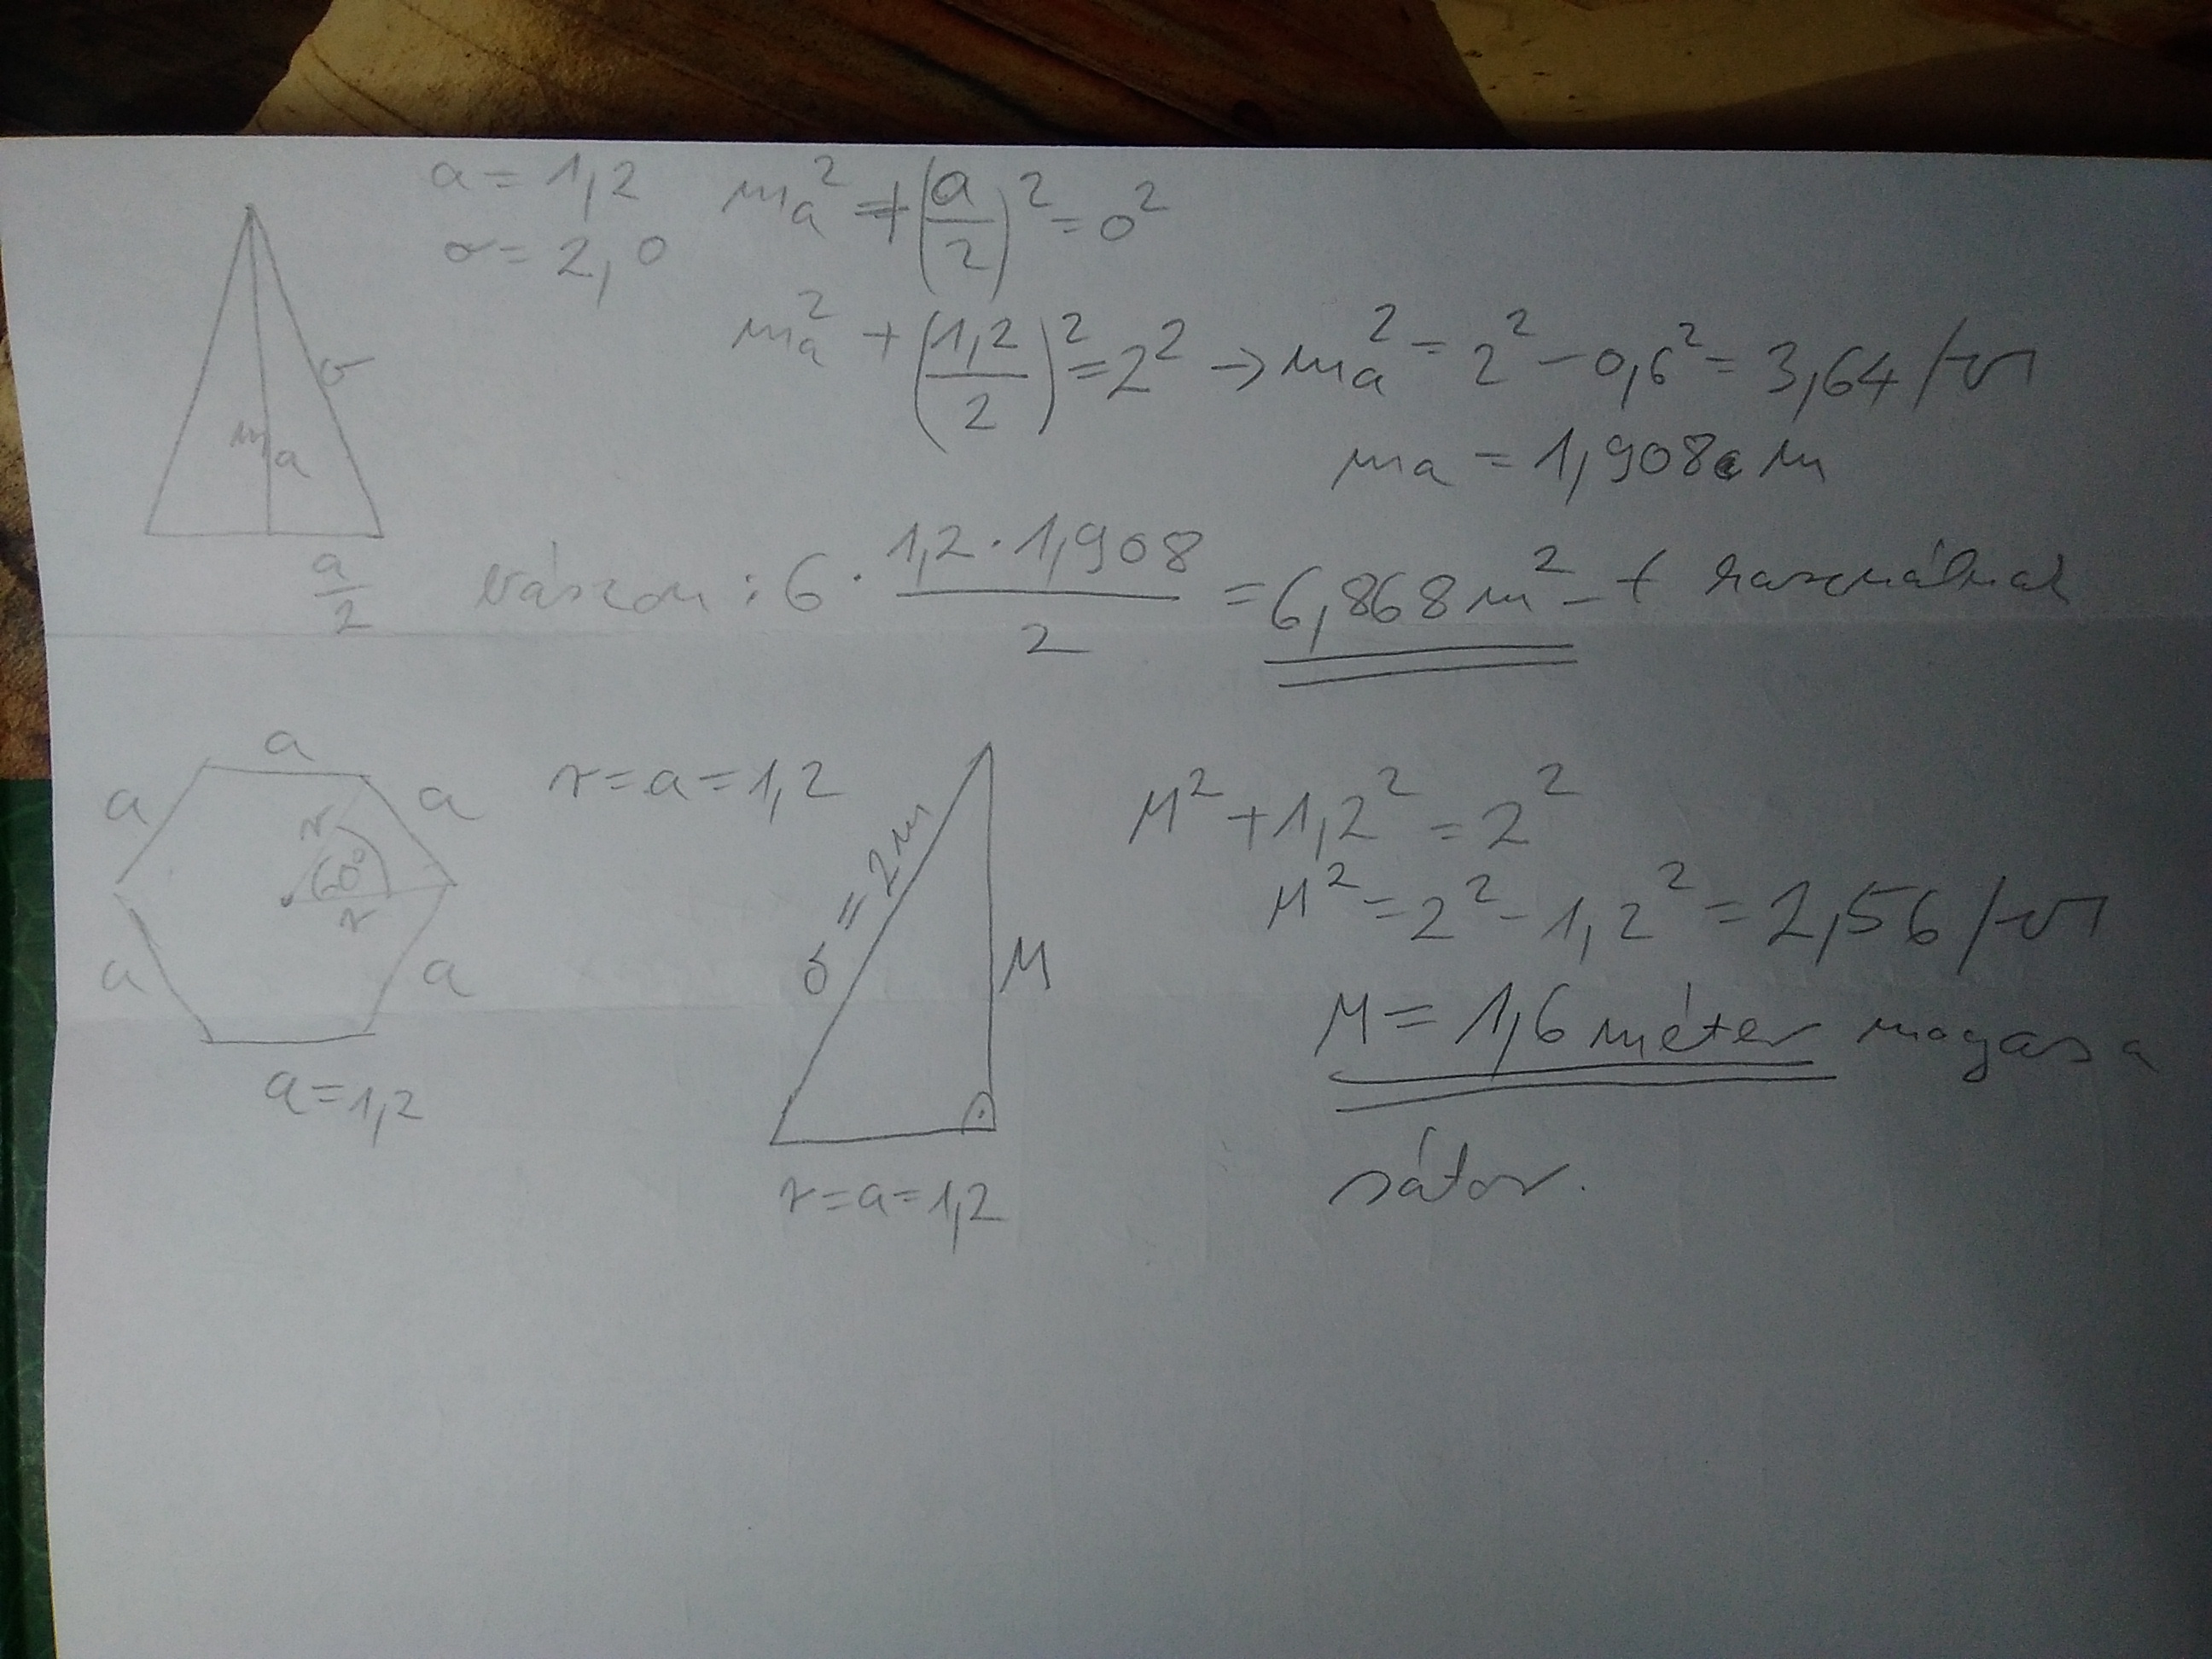 a = 1,2   ma² + (a/2)² = o²
o = 2,0
ma² + (1,2/2)² = 2² → ma² = 2² - 0,6² = 3,64 /√
o
ma
ma = 1,908 m
a/2   vászon : 6 · 1,2 · 1,908 / 2 = 6,868 m² -t használnak
a
a   a   r = a = 1,2
r
60°
r
a   a
a = 1,2
o = 2m
M
r = a = 1,2
M² + 1,2² = 2²
M² = 2² - 1,2² = 2,56 /√
M = 1,6 méter magas a
sátor.